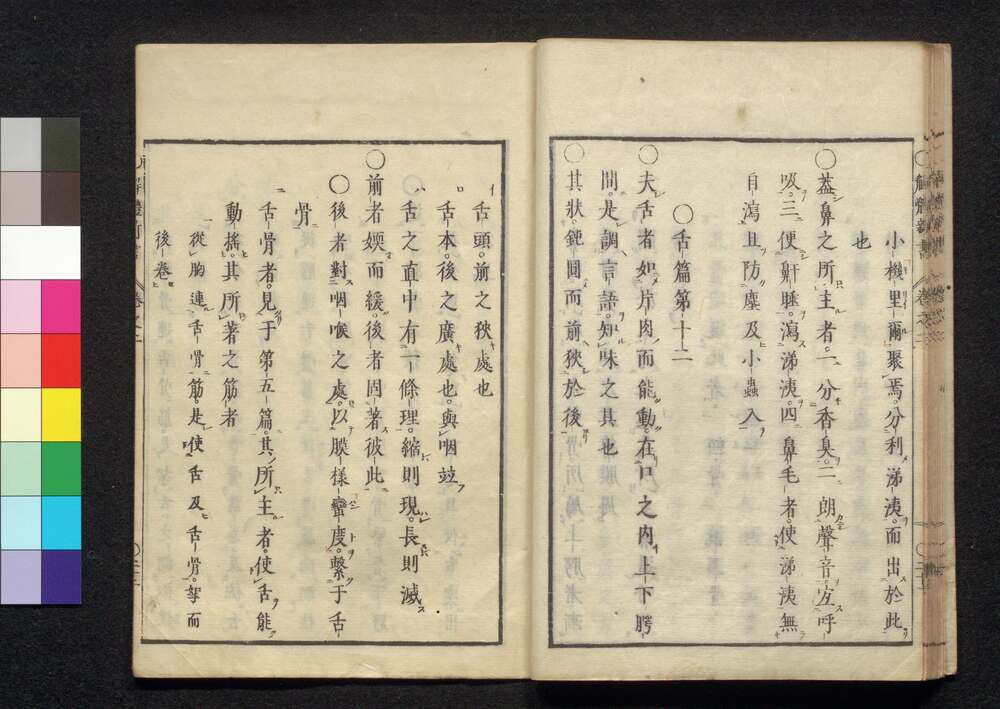 小機里爾聚焉分利涕洟而出於此
也
〇蓋鼻之所主者一分香臭二朗聲音互呼
吸三便鼾睡瀉涕洟四鼻毛者使涕洟無
自瀉且防塵及小蟲入
〇舌篇第十二
〇夫舌者如片肉而能動在口之內上下腭
間是調言語知味之具也
〇其狀鈍圓而前狹於後
イ舌頭前之狹處也
ロ舌本後之廣處也與咽竝
ハ舌之直中有一條理縮則現長則滅
〇前者㛂而緩後者固著彼此
〇後者對咽喉之處以膜樣蠻度繫于舌
骨
ニ舌骨者見于第五篇其所主者使舌能
動搖其所著之筋者
一從胸連舌骨筋是使舌及舌骨挐而
後卷